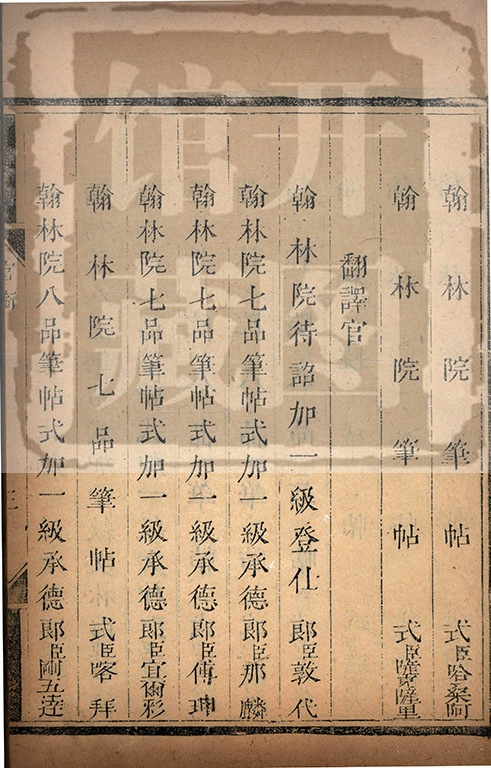 翰林院筆帖式臣哈桑阿
翰林院筆帖式臣薩克薩里
翻譯官
翰林院待詔加一級登仕郎臣敦代
翰林院七品筆帖式加一級承德郎臣那麟
翰林院七品筆帖式加一級承德郎臣傅珅
翰林院七品筆帖式加一級承德郎臣宜爾彩
翰林院七品筆帖式臣喀拜
翰林院八品筆帖式加一級承德郎臣剛五達
官銜
三
开图
馆藏